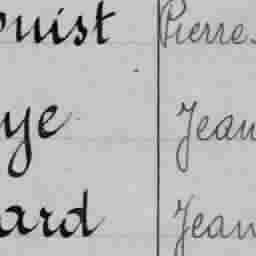 ouist Pierre
ye Jean
ard Jean